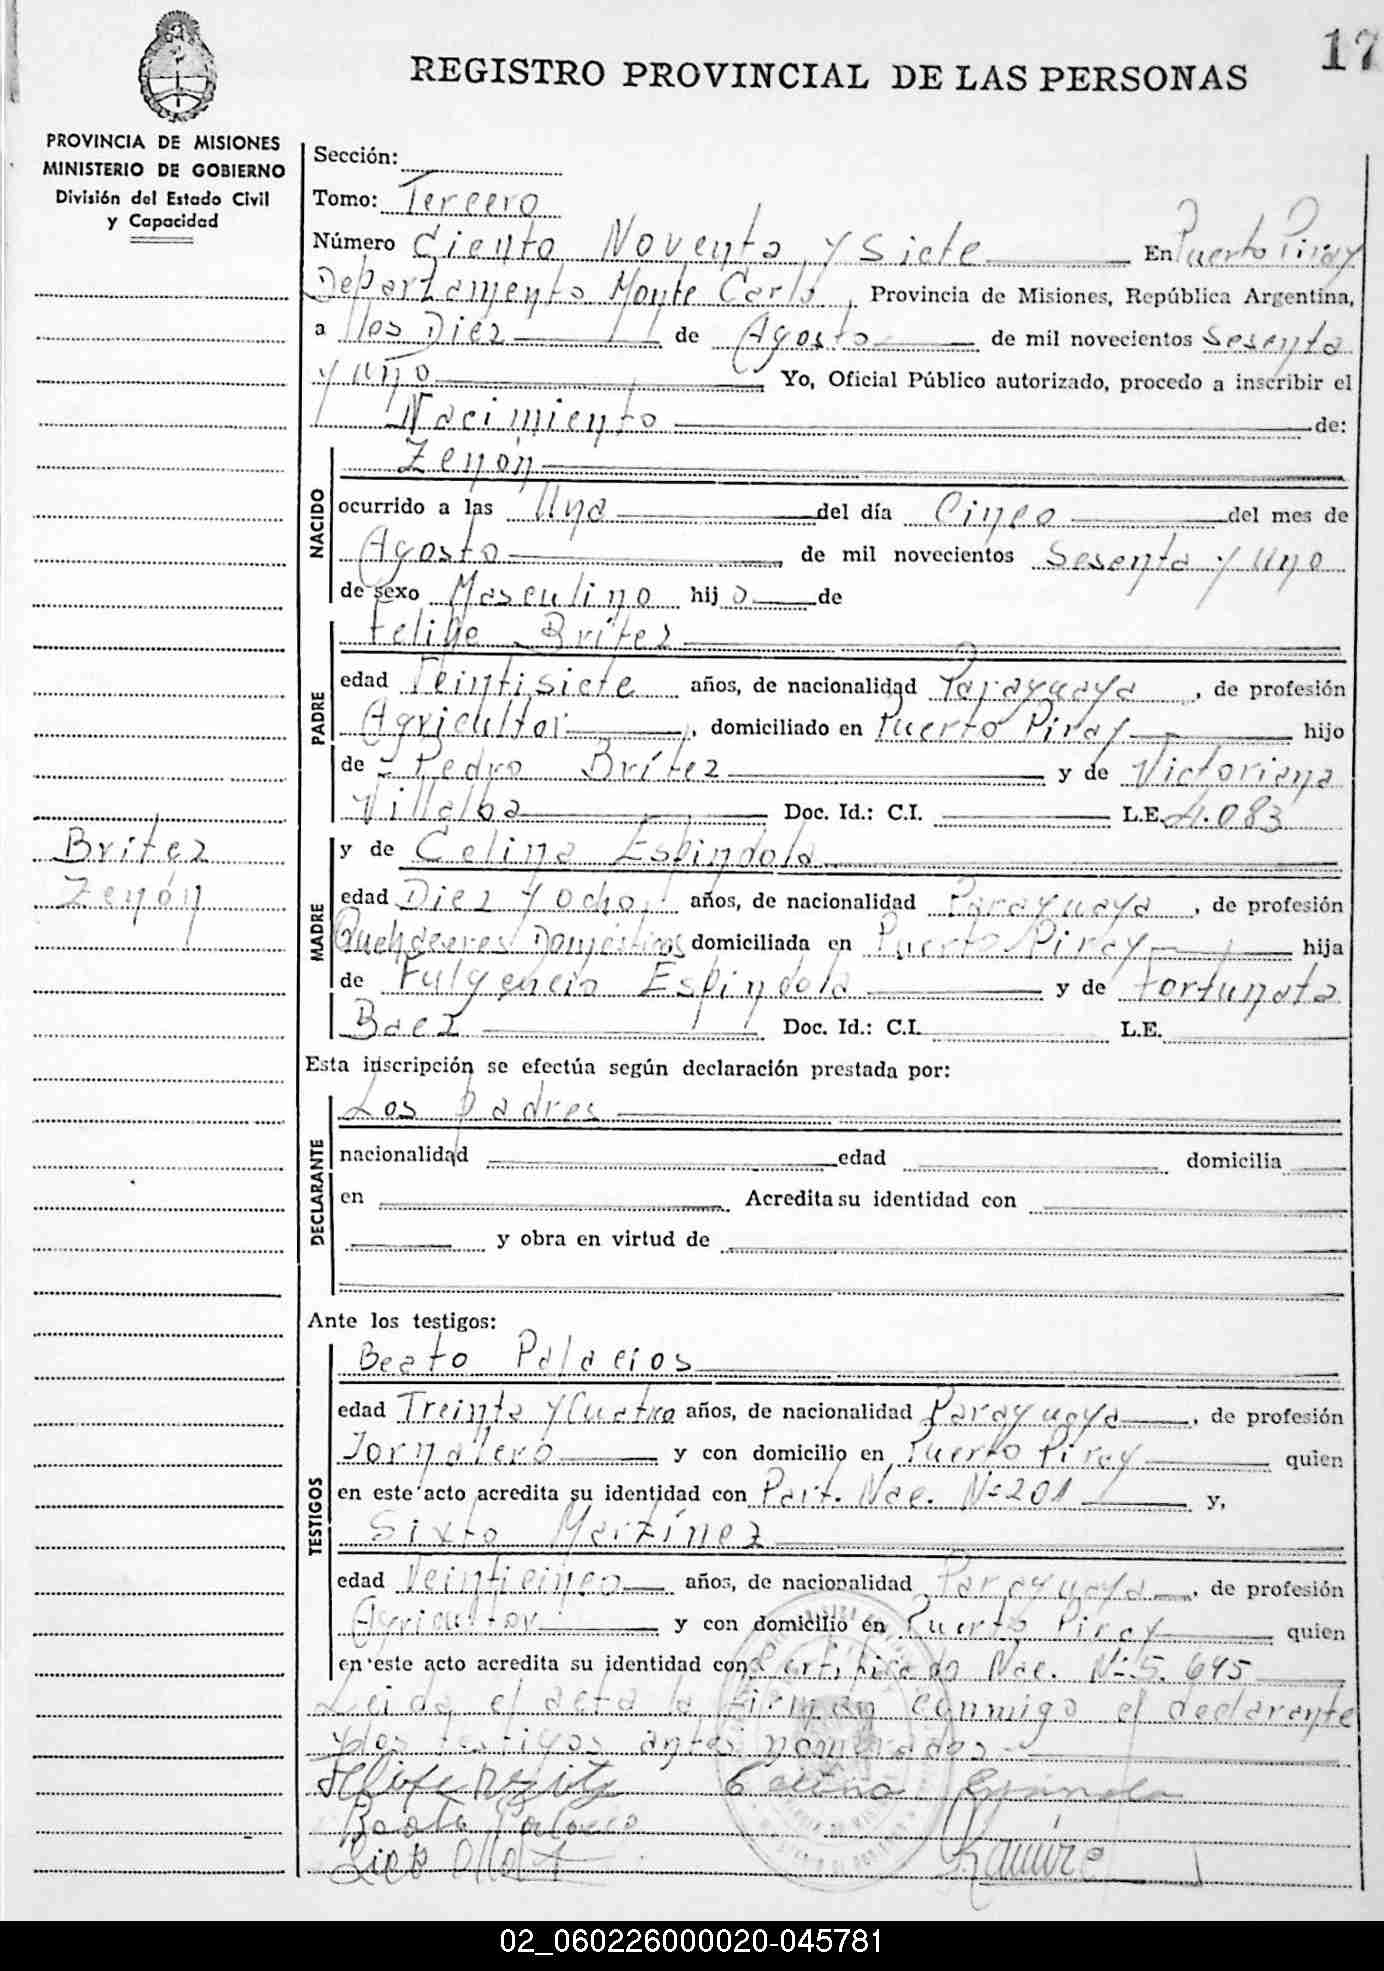 17
REGISTRO PROVINCIAL DE LAS PERSONAS
PROVINCIA DE MISIONES
MINISTERIO DE GOBIERNO
División del Estado Civil
y Capacidad
Sección:
Tomo: Tercero
Número Ciento Noventa y Siete En Puerto Piray
Departamento Monte Carlo, Provincia de Misiones, República Argentina,
a los Diez de Agosto de mil novecientos Sesenta
y uno Yo, Oficial Público autorizado, procedo a inscribir el
Nacimiento de:
Zenón
NACIDO
ocurrido a las Una del día Cinco del mes de
Agosto de mil novecientos Sesenta y uno
de sexo Masculino hijo de
Felipe Britez
PADRE
edad Veintisiete años, de nacionalidad Paraguaya, de profesión
Agricultor, domiciliado en Puerto Piray hijo
de Pedro Britez y de Victoriana
Villalba Doc. Id.: C.I. L.E. 4.083
Britez
Zenón
MADRE
y de Celina Espindola
edad Diez y ocho, años, de nacionalidad Paraguaya, de profesión
Quehaceres Domésticos domiciliada en Puerto Piray hija
de Fulgencio Espindola y de Fortunata
Baez Doc. Id.: C.I. L.E.
Esta inscripción se efectúa según declaración prestada por:
Los padres
DECLARANTE
nacionalidad edad domicilia
en Acredita su identidad con
y obra en virtud de
Ante los testigos:
Beato Palacios
TESTIGOS
edad Treinta y Cuatro años, de nacionalidad Paraguaya, de profesión
Jornalero y con domicilio en Puerto Piray quien
en este acto acredita su identidad con Part. Nac. Nº 201 y,
Sixto Martínez
edad Veinticinco años, de nacionalidad Paraguaya, de profesión
Agricultor y con domicilio en Puerto Piray quien
en este acto acredita su identidad con Certificado Nac. Nº 5.645
Leida el acta la firman conmigo el declarante
y los testigos antes nombrados.
Celina Espindola
Beato Palacio
Ramirez
02_060226000020-045781